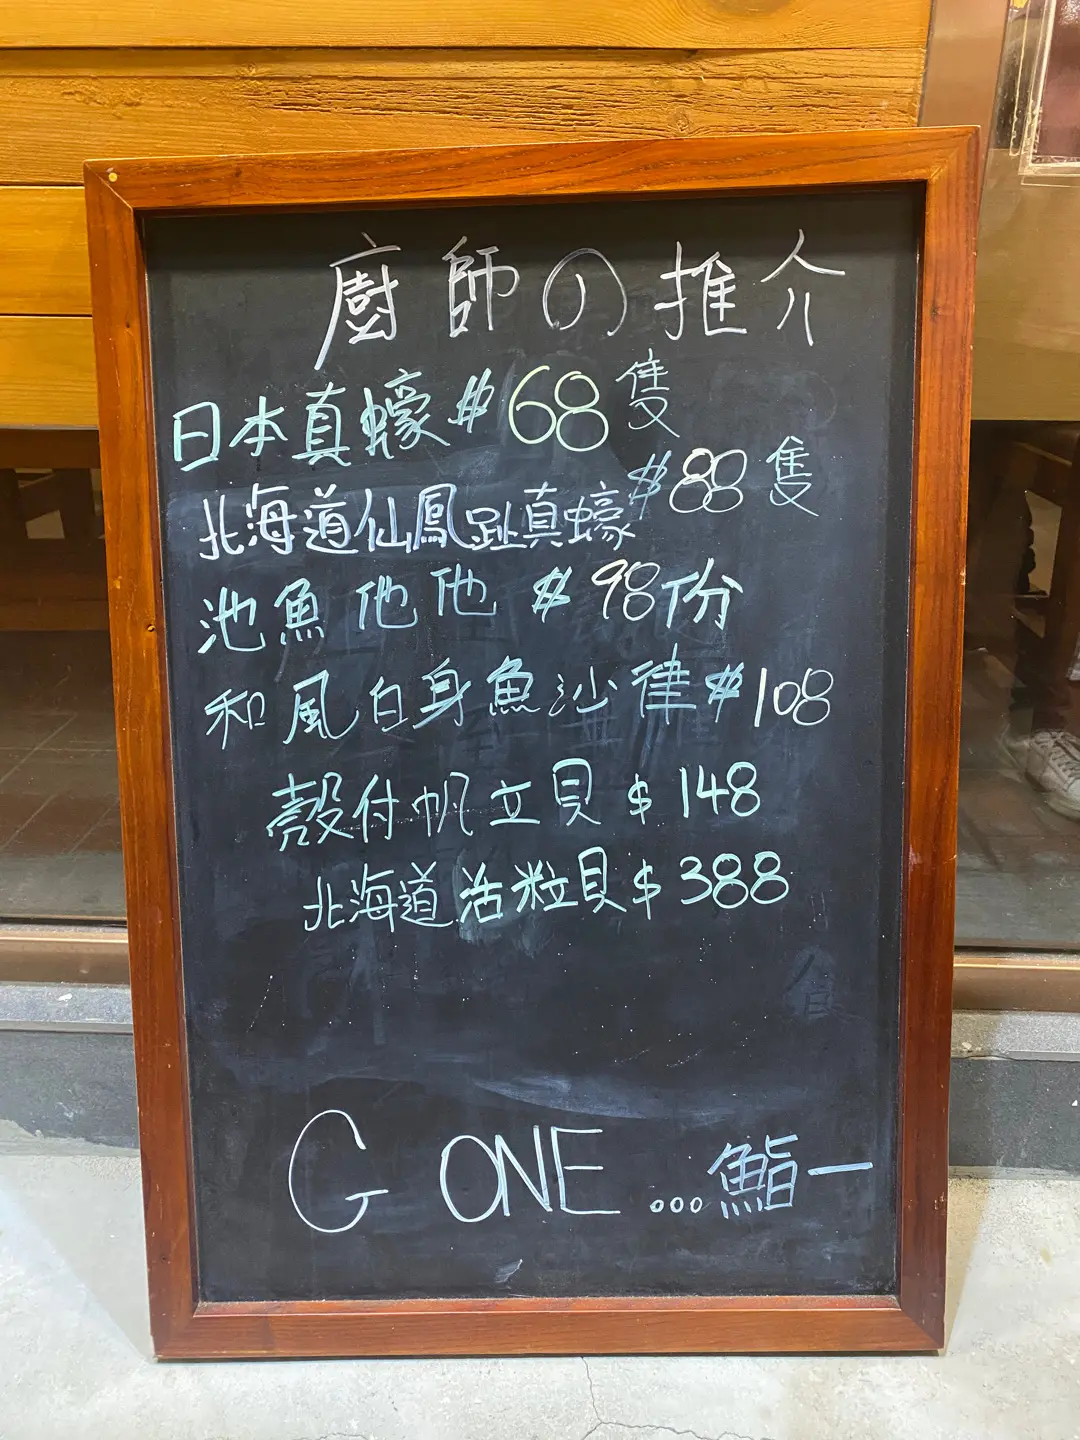 廚師の推介
日本真蠔 $68隻
北海道仙鳳趾真蠔 $88隻
池魚他他 $98份
和風白身魚沙律 $108
殼付帆立貝 $148
北海道活粒貝 $388
G ONE ...鮨一